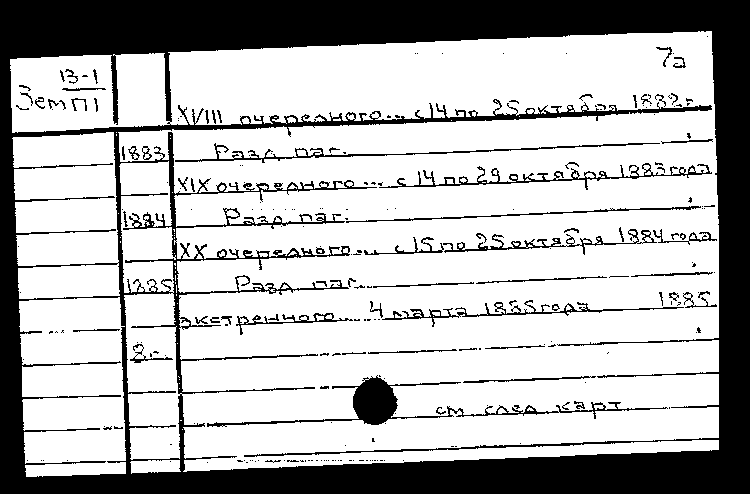 7а
13-1
Зем П1
XVIII очередного... с 14 по 25 октября 1882 г.
1883 Разд. паг.
XIX очередного... с 14 по 29 октября 1883 года
1884 Разд. паг.
XX очередного... с 15 по 25 октября 1884 года
1885 Разд. паг.
экстренного... 4 марта 1885 года 1885.
8г.
см. след. карт.